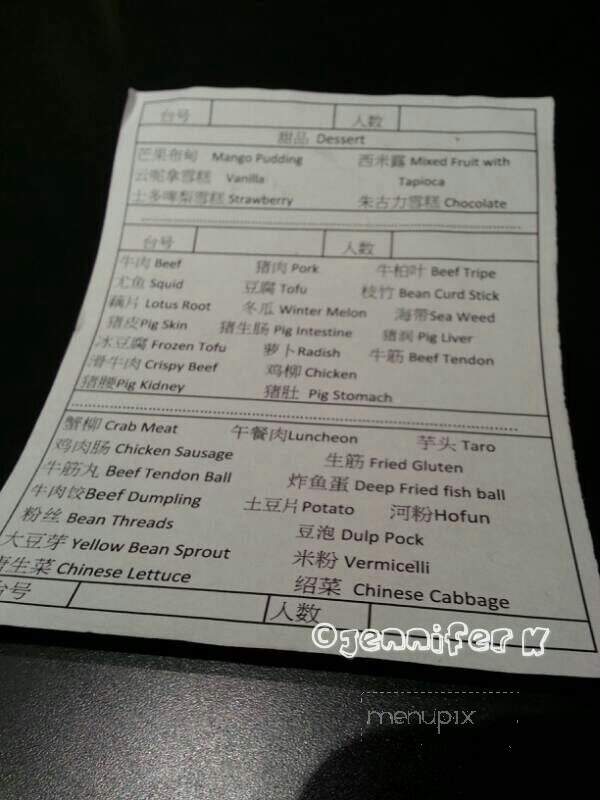 台号 人数
甜品 Dessert
芒果布甸 Mango Pudding 西米露 Mixed Fruit with
云呢拿雪糕 Vanilla Tapioca
士多啤梨雪糕 Strawberry 朱古力雪糕 Chocolate
台号 人数
牛肉 Beef 猪肉 Pork 牛柏叶 Beef Tripe
尤鱼 Squid 豆腐 Tofu 枝竹 Bean Curd Stick
藕片 Lotus Root 冬瓜 Winter Melon 海带Sea Weed
猪皮Pig Skin 猪生肠 Pig Intestine 猪润 Pig Liver
冰豆腐 Frozen Tofu 萝卜Radish 牛筋 Beef Tendon
滑牛肉 Crispy Beef 鸡柳 Chicken
猪腰Pig Kidney 猪肚 Pig Stomach
蟹柳 Crab Meat 午餐肉Luncheon 芋头 Taro
鸡肉肠 Chicken Sausage 生筋 Fried Gluten
牛筋丸 Beef Tendon Ball 炸鱼蛋 Deep Fried fish ball
牛肉饺Beef Dumpling 土豆片Potato 河粉Hofun
粉丝 Bean Threads 豆泡 Dulp Pock
大豆芽 Yellow Bean Sprout 米粉 Vermicelli
唐生菜 Chinese Lettuce 绍菜 Chinese Cabbage
台号 人数
©jennifer K
menupix